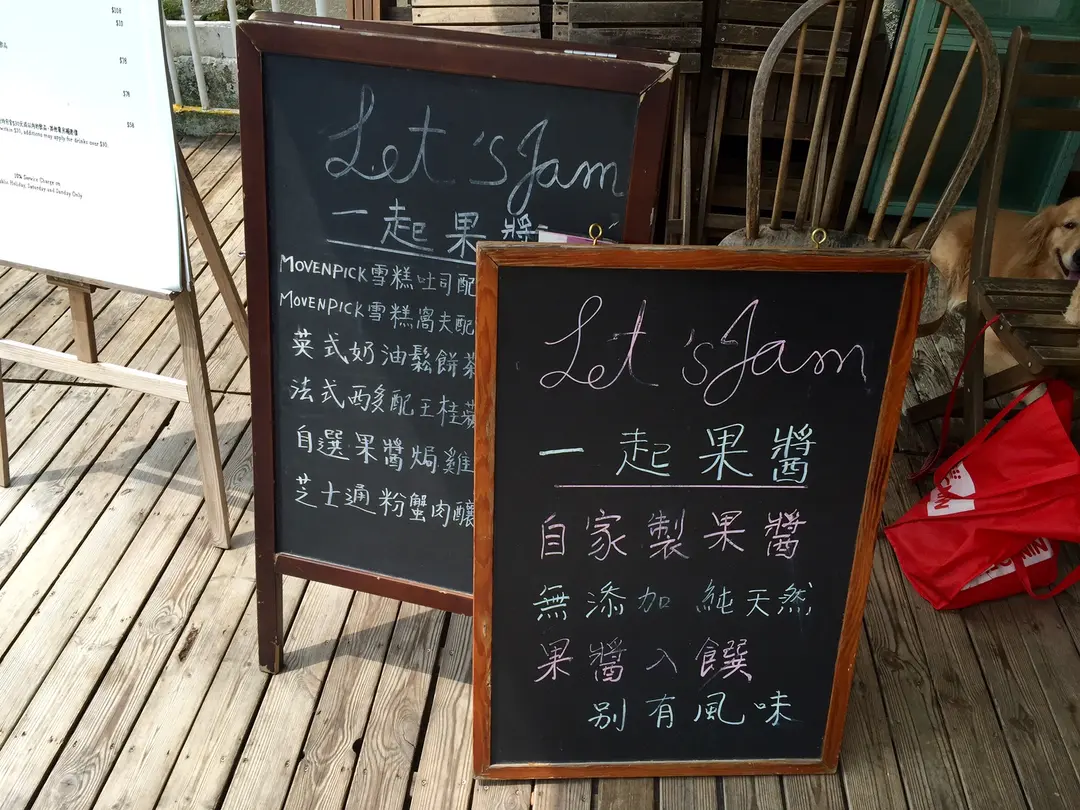 $108
$78
$78
$58
within $30, additions may apply for drinks over $30.
10% Service Charge on
Public Holiday, Saturday and Sunday Only
Let's Jam
一起果醬
MOVENPICK雪糕吐司配
MOVENPICK雪糕窩夫配
英式奶油鬆餅茶
法式西多配玉桂蘋
自選果醬焗雞
芝士通粉蟹肉釀
Let's Jam
一起果醬
自家製果醬
無添加 純天然
果醬入饌
別有風味